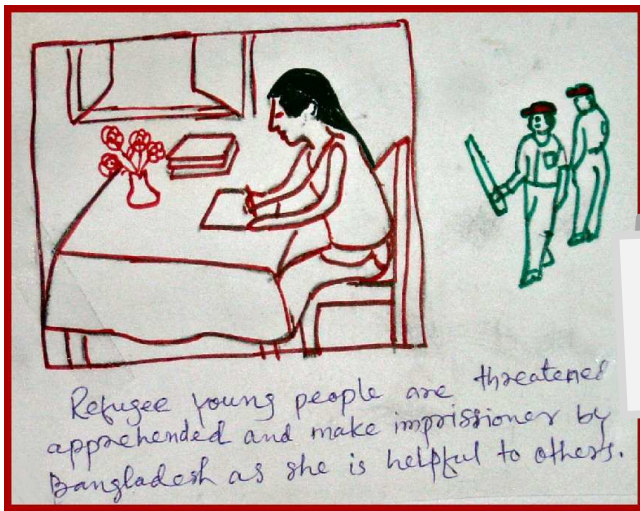 Refugee young people are threatened
apprehended and make imprissioner by
Bangladesh as she is helpful to others.